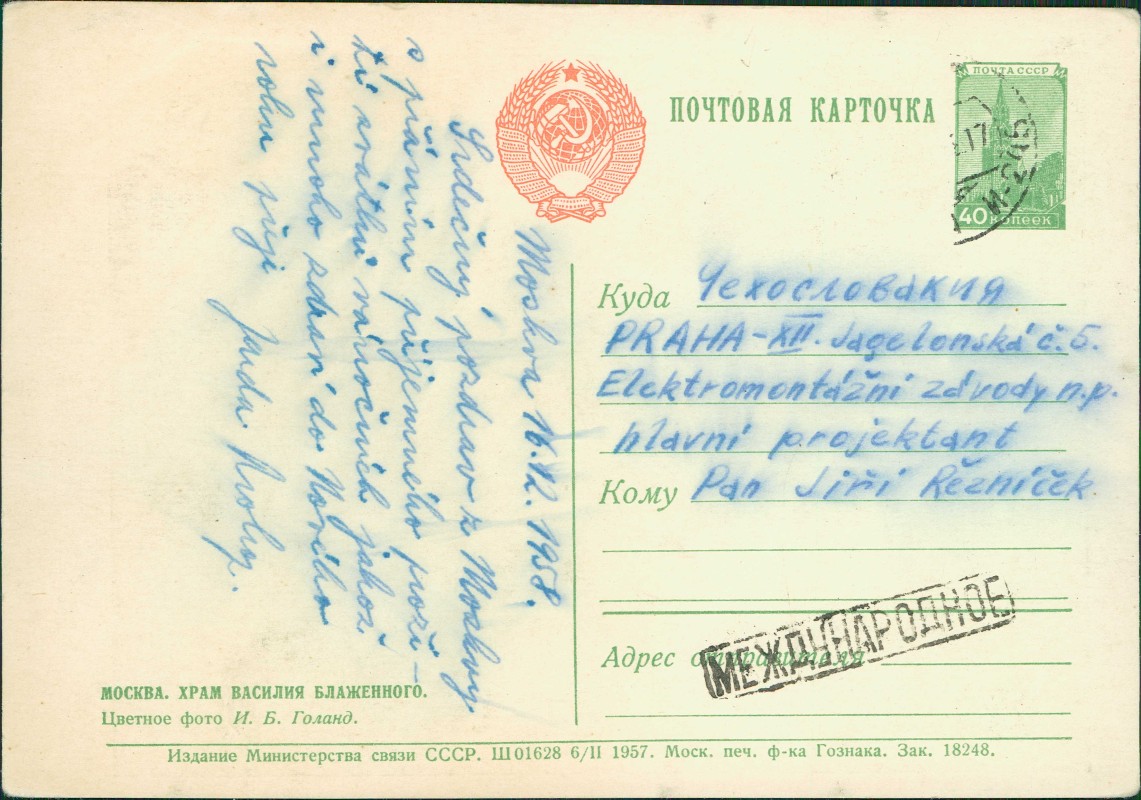 ПОЧТОВАЯ КАРТОЧКА
ПОЧТА СССР
40 КОПЕЕК
17
Moskva 16.12.1958.
Srdečný pozdrav z Moskvy
s přáním příjemného proži-
tí svátků vánočních jakož
i mnoho zdraví do Nového
roku přeje
Куда Чехословакия
PRAHA-XII. Jagelonská č.5.
Elektromontážní závody n.p.
hlavní projektant
Кому Pan Jiří Řezníček
Адрес отправителя
МЕЖДУНАРОДНОЕ
МОСКВА. ХРАМ ВАСИЛИЯ БЛАЖЕННОГО.
Цветное фото И. Б. Голанд.
Издание Министерства связи СССР. Ш01628 6/II 1957. Моск. печ. ф-ка Гознака. Зак. 18248.